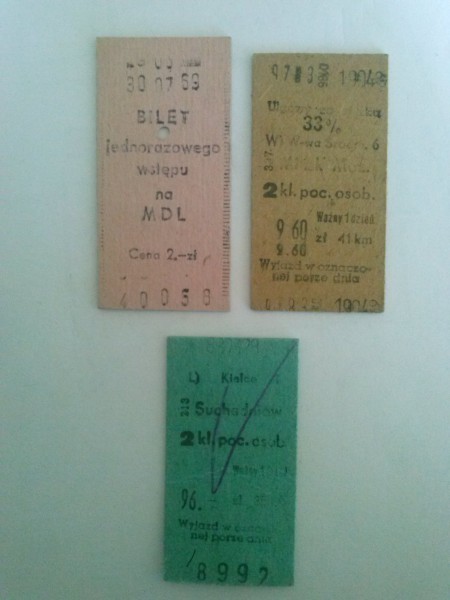 30 07 69
BILET
jednorazowego
wstępu
na
MDL
Cena 2.-zł
40058
19043
33%
W) W-wa Śródm. 6
2 kl. poc. osob.
Ważny 1 dzień
9 60 zł 41 km
9.60
Wyjazd w oznaczo-
nej porze dnia
19043
Kielce
Suchedniów
2 kl. poc. osob.
96.-
Wyjazd w oznaczo-
nej porze dnia
8992